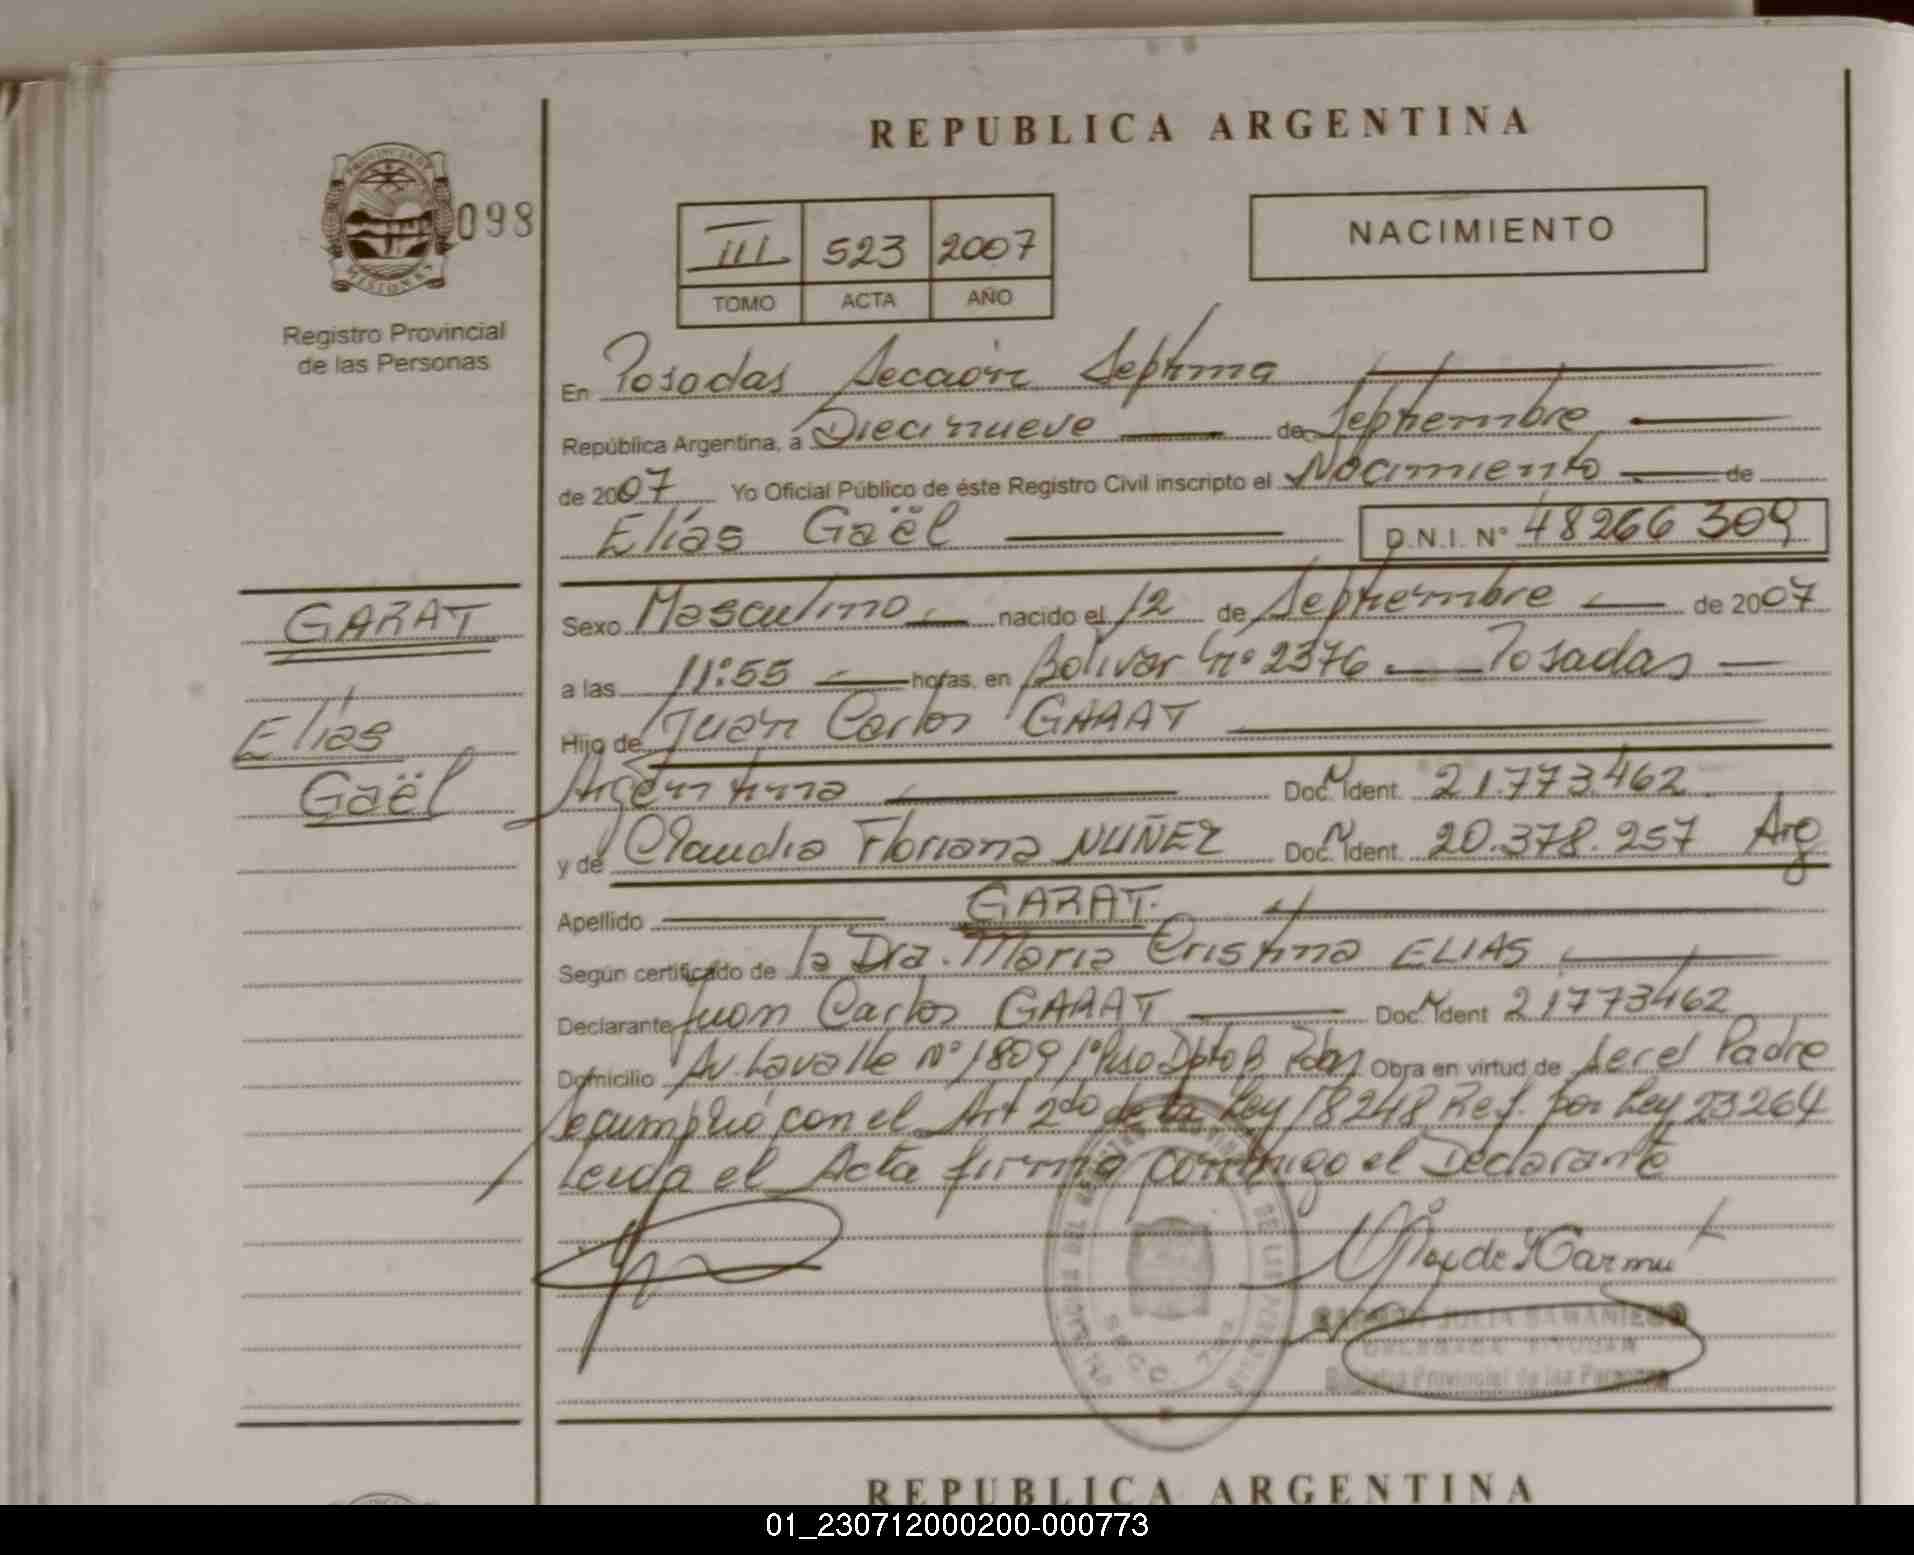 REPUBLICA ARGENTINA
PROVINCIA DE
MISIONES
098
Registro Provincial
de las Personas
III 523 2007
TOMO ACTA AÑO
NACIMIENTO
En Posadas Sección Septima
República Argentina, a Diecinueve de Septiembre
de 2007 Yo Oficial Público de éste Registro Civil inscripto el Nacimiento de
Elías Gaël D.N.I. Nº 48266309
GARAT
Elías
Gaël
Sexo Masculino nacido el 12 de Septiembre de 2007
a las 11:55 horas, en Bolivar nº 2376 Posadas
Hijo de Juan Carlos GARAT
Argentino Doc. Ident. 21.773.462
y de Claudia Floriana NUÑEZ Doc. Ident. 20.378.257 Arg
Apellido GARAT.
Según certificado de la Dra. Maria Cristina ELIAS
Declarante Juan Carlos GARAT Doc. Ident 21773462
Domicilio Av. Lavalle Nº 1809 1º Piso Dpto B Pdas Obra en virtud de ser el Padre
Se cumplió con el Art 2do de la Ley 18248 Ref. por Ley 23264
Leida el Acta firma conmigo el Declarante
JULIA SAMANIEGO
Registro Provincial de las Personas
REPUBLICA ARGENTINA
01_230712000200-000773